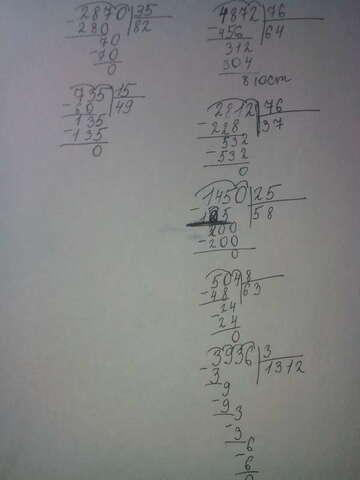 2870 | 35
280 | 82
70
- 70
0
735 | 15
- 60 | 49
135
- 135
0
4872 | 76
- 456 | 64
312
304
8 ост
2812 | 76
- 228 | 37
532
- 532
0
1450 | 25
- 125 | 58
200
- 200
0
504 | 8
- 48 | 63
24
- 24
0
3936 | 3
- 3 | 1312
9
- 9
3
- 3
6
- 6
0